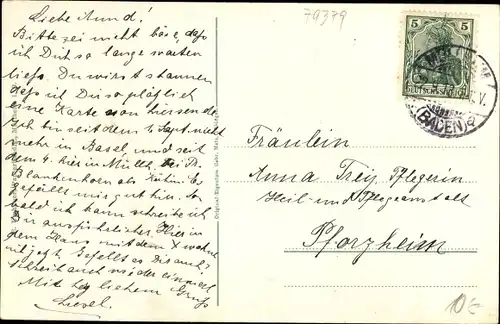 Liebe Freund!
Bitte sei nicht böse, dass
ich Dich so lange warten
liess. Du wirst staunen
dass ich Du so plötzlich
eine Karte von hier sende
Ich bin seit dem 1. Sept. nicht
mehr in Basel und seit
dem 4. hier in Müllh. bei Dr.
Blankenhorn als Köchin. Es
gefällt mir gut hier. So
bald ich kann schreibe ich
Dir ausführlicher. Hier in
dem Haus mit dem X wohne
ich jetzt. Gefällt es Dir auch?
Schreib auch wieder einmal
Mit herzlichem Gruss
Liesel.
79379
5 5
DEUTSCHES REICH
(BADEN)
Fräulein
Anna Treiz Pflegerin
Heil- und Pflegeanstalt
Pforzheim
10€